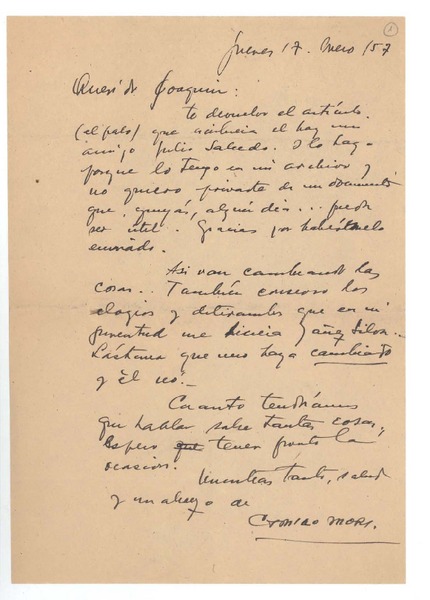 1
Jueves 17. Enero /57
Querido Joaquín:
te devuelvo el artículo.
(el palo) que el hoy
amigo Julio Salcedo. I lo hago
porque lo tengo en mi archivo y
no quiero privarte de un documento
que, quizás, algún día... pueda
ser útil. Gracias por habérmelo
enviado.
Así van cambiando las
cosas.. También conservo los
elogios y ditirambos que en mi
juventud me hiciera Yáñez Silva..
Lástima que uno haya cambiado
y él no.—
Cuanto tendríamos
que hablar sobre tantas cosas,
Espero que tener pronto la
ocasión.
Mientras tanto, salud
y un abrazo de